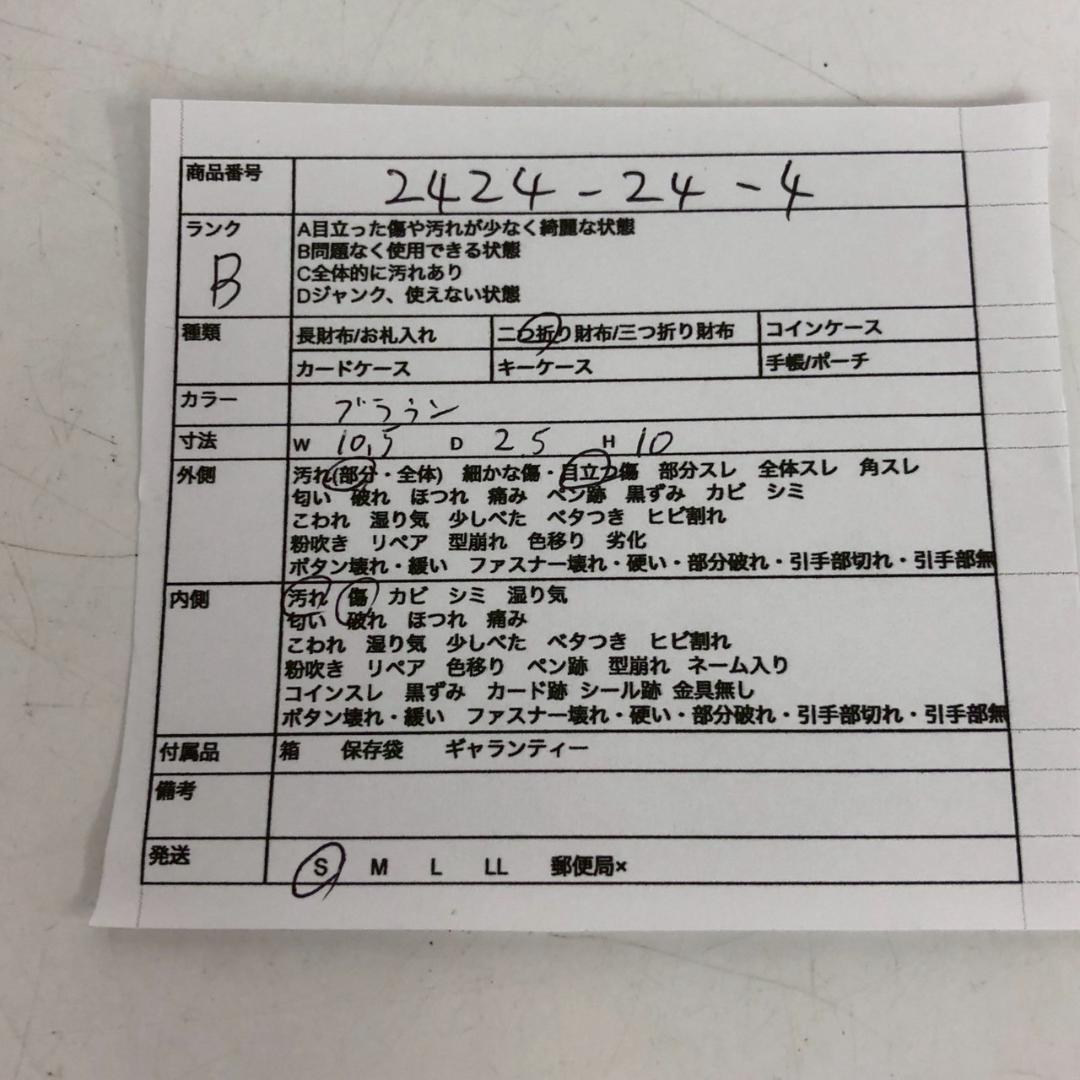 商品番号 2424-24-4
ランク B
A目立った傷や汚れが少なく綺麗な状態
B問題なく使用できる状態
C全体的に汚れあり
Dジャンク、使えない状態
種類 長財布/お札入れ 二つ折り財布/三つ折り財布 コインケース
カードケース キーケース 手帳/ポーチ
カラー ブラウン
寸法 W 10,5 D 2.5 H 10
外側 汚れ(部分・全体) 細かな傷・目立つ傷 部分スレ 全体スレ 角スレ
匂い 破れ ほつれ 痛み ペン跡 黒ずみ カビ シミ
こわれ 湿り気 少しべた ベタつき ヒビ割れ
粉吹き リペア 型崩れ 色移り 劣化
ボタン壊れ・緩い ファスナー壊れ・硬い・部分破れ・引手部切れ・引手部無
内側 汚れ 傷 カビ シミ 湿り気
匂い 破れ ほつれ 痛み
こわれ 湿り気 少しべた ベタつき ヒビ割れ
粉吹き リペア 色移り ペン跡 型崩れ ネーム入り
コインスレ 黒ずみ カード跡 シール跡 金具無し
ボタン壊れ・緩い ファスナー壊れ・硬い・部分破れ・引手部切れ・引手部無
付属品 箱 保存袋 ギャランティー
備考
発送 S M L LL 郵便局×